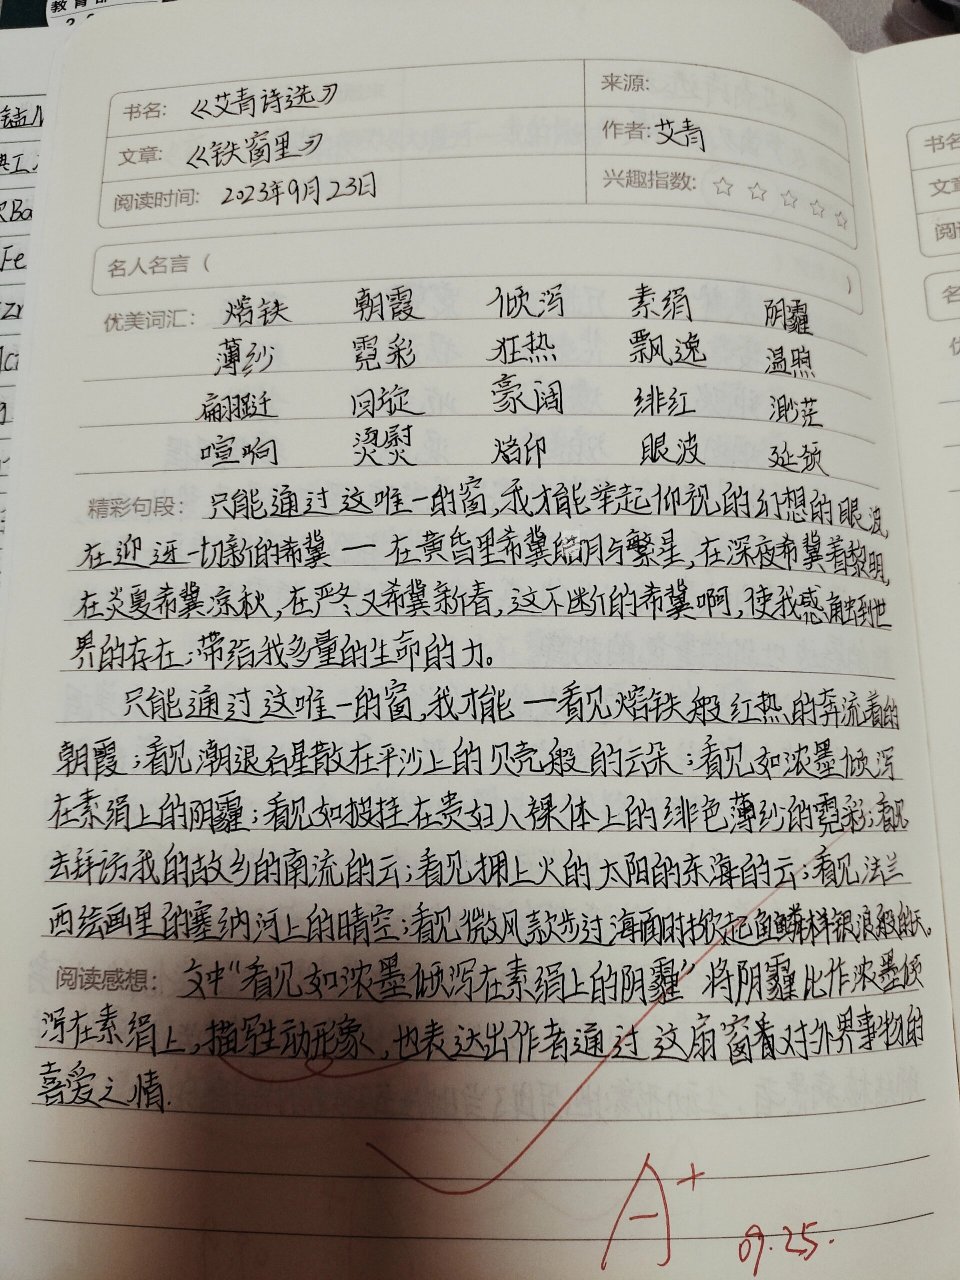 教育部
书名: 《艾青诗选》 来源:
文章: 《铁窗里》 作者: 艾青
阅读时间: 2023年9月23日 兴趣指数: ☆ ☆ ☆ ☆ ☆
名人名言 ( )
优美词汇: 熔铁 朝霞 倾泻 素绢 阴霾
薄纱 霓彩 狂热 飘逸 温煦
翩跹 回旋 豪阔 绯红 渺茫
喧响 烫熨 烙印 眼波 延颈
精彩句段: 只能通过这唯一的窗,我才能举起仰视的幻想的眼波,
在迎迓一切新的希冀 — 在黄昏里希冀皓月与繁星,在深夜希冀着黎明,
在炎夏希冀凉秋,在严冬又希冀新春,这不断的希冀啊,使我感触到世
界的存在;带给我多量的生命的力。
只能通过这唯一的窗,我才能 — 看见熔铁般红热的奔流着的
朝霞;看见潮退后星散在平沙上的贝壳般的云朵;看见如浓墨倾泻
在素绢上的阴霾;看见如披挂在贵妇人裸体上的绯色薄纱的霓彩;看见
去拜访我的故乡的南流的云;看见拥上火的太阳的东海的云;看见法兰
西绘画里的塞纳河上的晴空;看见微风款步过海面时掀起鱼鳞样银浪般的天。
阅读感想: 文中“看见如浓墨倾泻在素绢上的阴霾”将阴霾比作浓墨倾
泻在素绢上,描写生动形象,也表达出作者通过这扇窗看对外界事物的
喜爱之情.
A+
09.25.